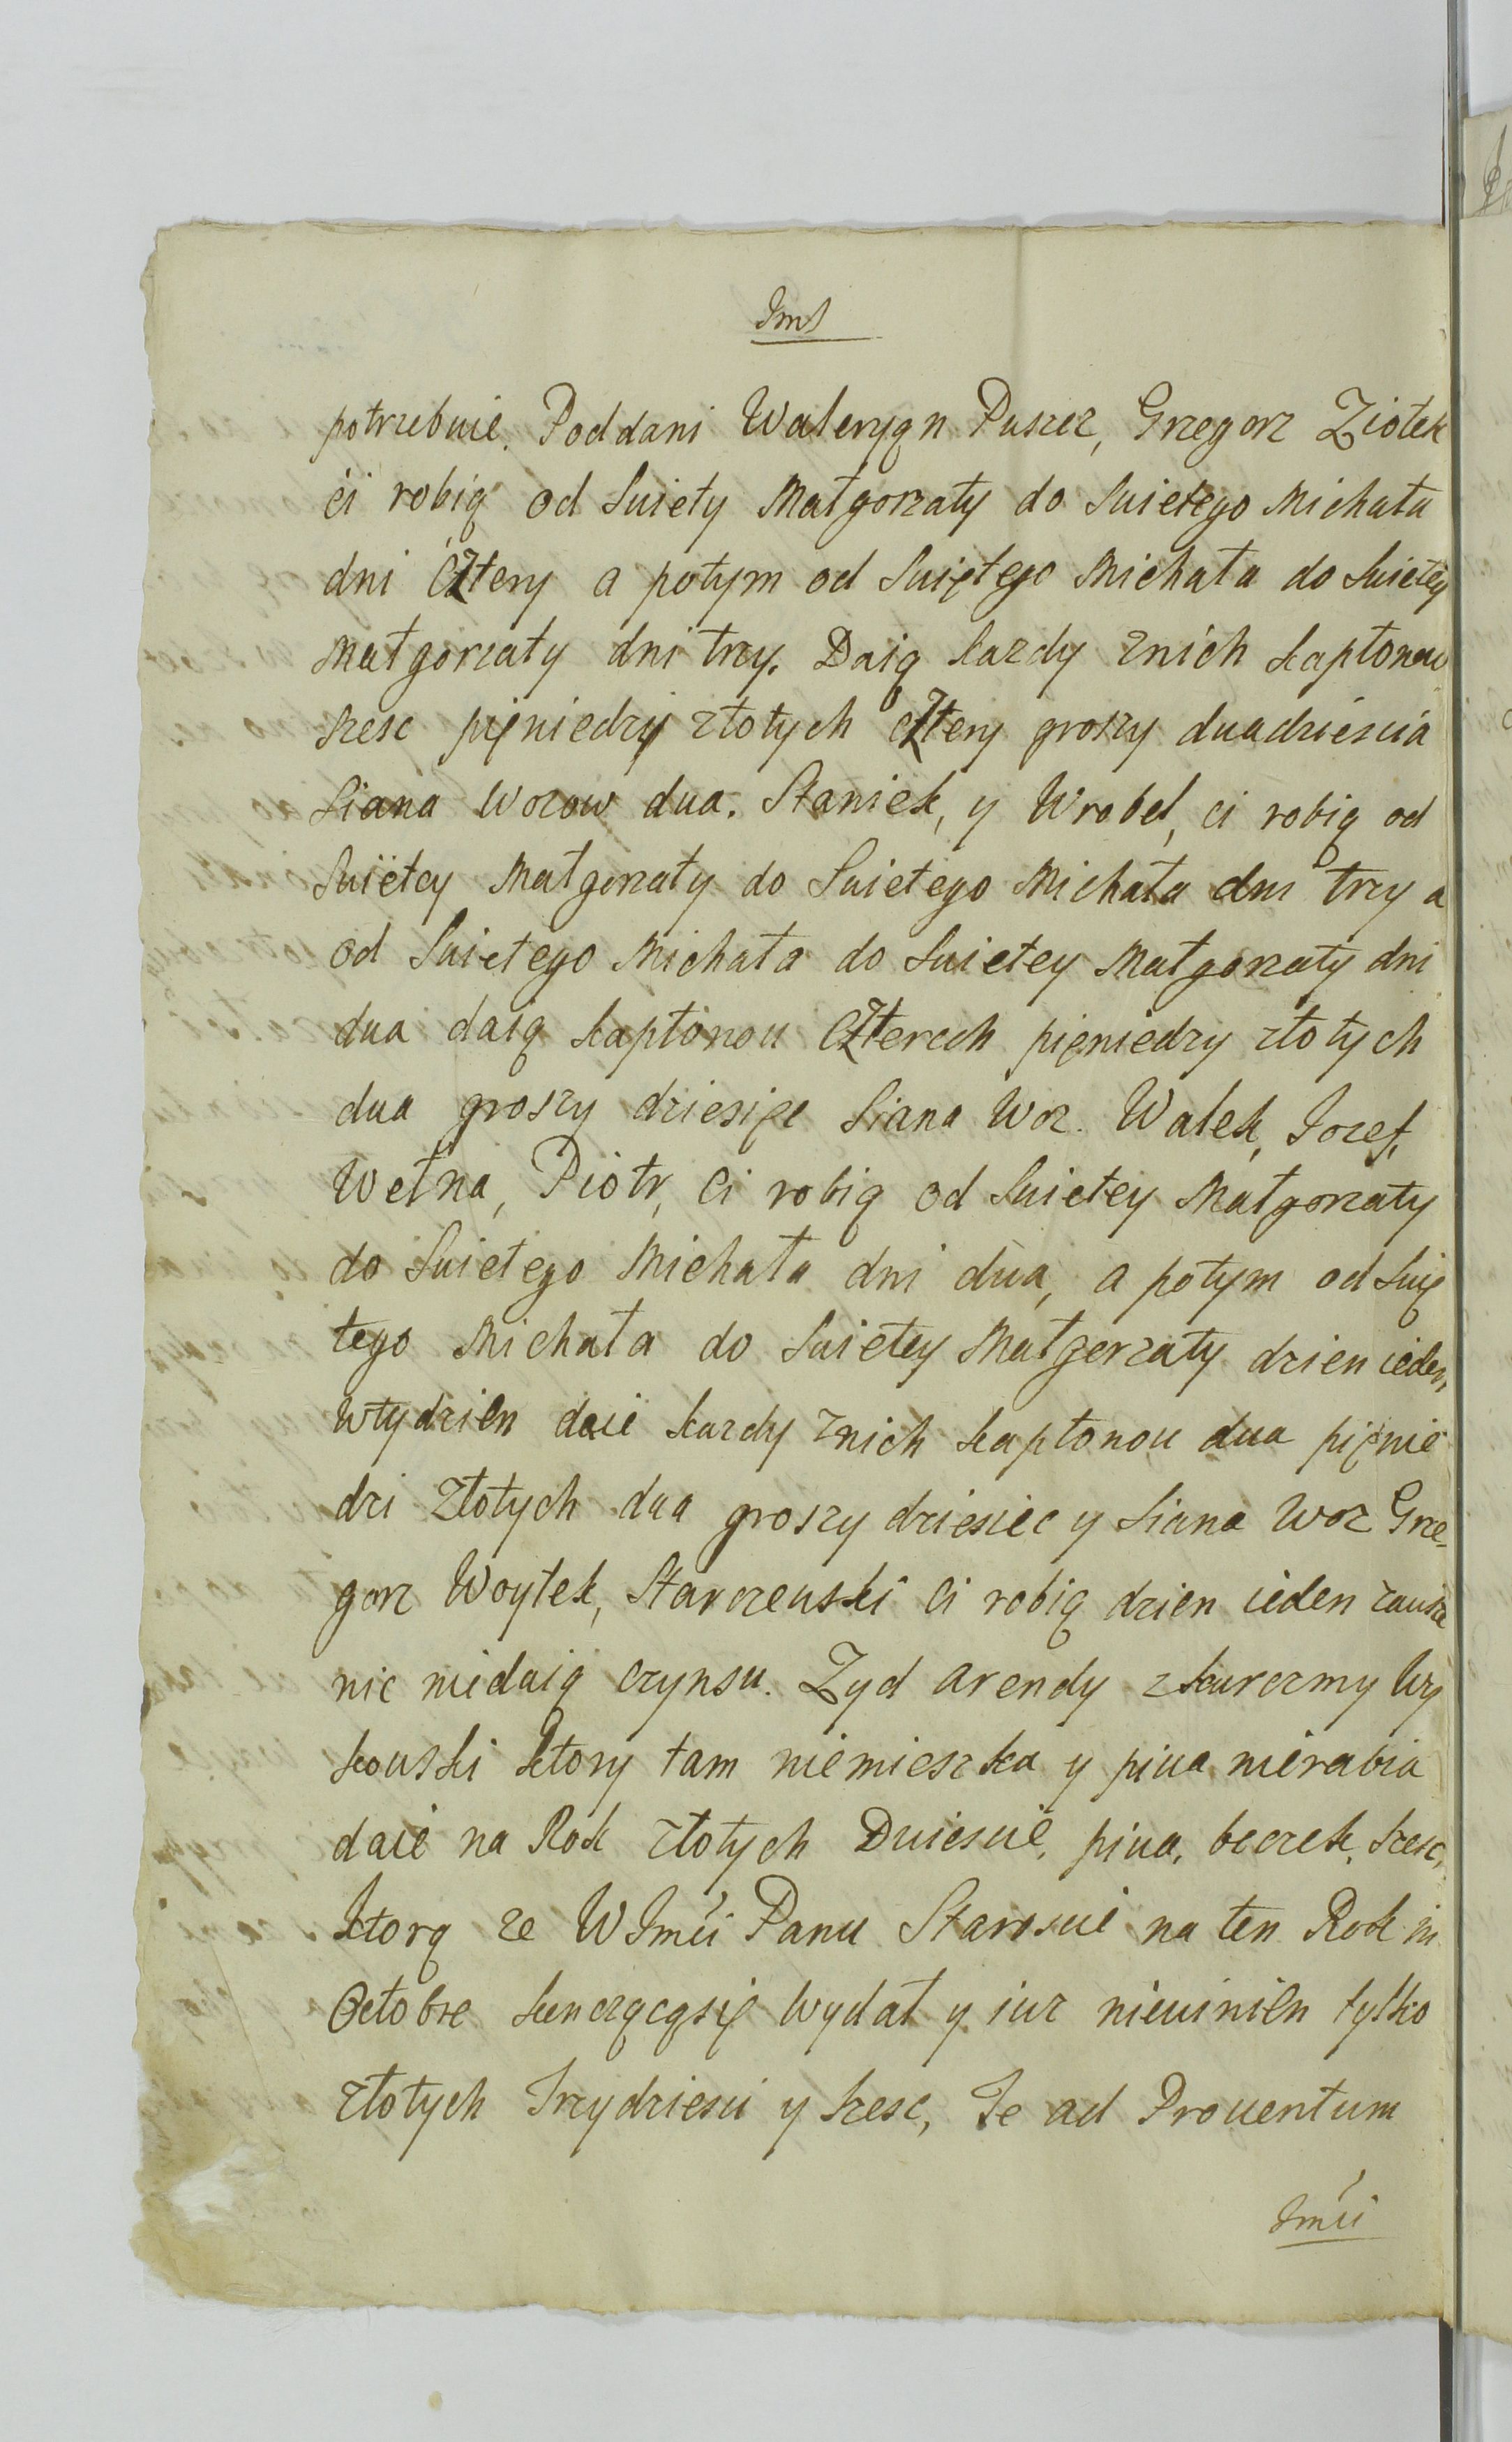 potrzebuie. Poddani Waleryąn Puszcz, Grzegorz Ziołek
ci robią od Swięty Małgorzaty do Swietego Michała
dni Cztery a potym od Swiętego Michała do Swietey
Małgorzaty dni trzy. Daią kazdy znich kapłonow
szesc pięniedzy złotych cztery groszy dwadziescia
siana wozow dwa. Staniek, y Wrobel, ci robią od
Swiętey Małgorzaty do Swietego Michała dni trzy a
od Swietego Michała do Swietey Małgorzaty dni
dwa daią kapłonow Czterech pięniedzy złotych
dwa groszy dziesięc siana woz. Walek, Jozef,
Wełna, Piotr, ci robią od Swietey Małgorzaty
do Swietego Michała dni dwa, a potym od Swię
tego Michała do Swietey Małgerzaty dzien ieden,
wtydzien daie kazdy znich kapłonow dwa pięnie
dzi złotych dwa groszy dziesiec y siana woz Grze-
gorz Woytek, Starczewski ci robią dzien ieden zawsze
nic niedaią czynsu. Zyd arendy zkarczmy Wy
kowski ktory tam niemieszka y piwa nierabia
daie na Rok złotych Dwiescie, piwa, beczek, szesc,
ktorą ze WJmci Panu Staroscie na ten Rok in
Octobre kenczącąsię wydał y iuz niewinien tylko
złotych Trzydziesci y szesc, Te ad Prouentum
Jmci